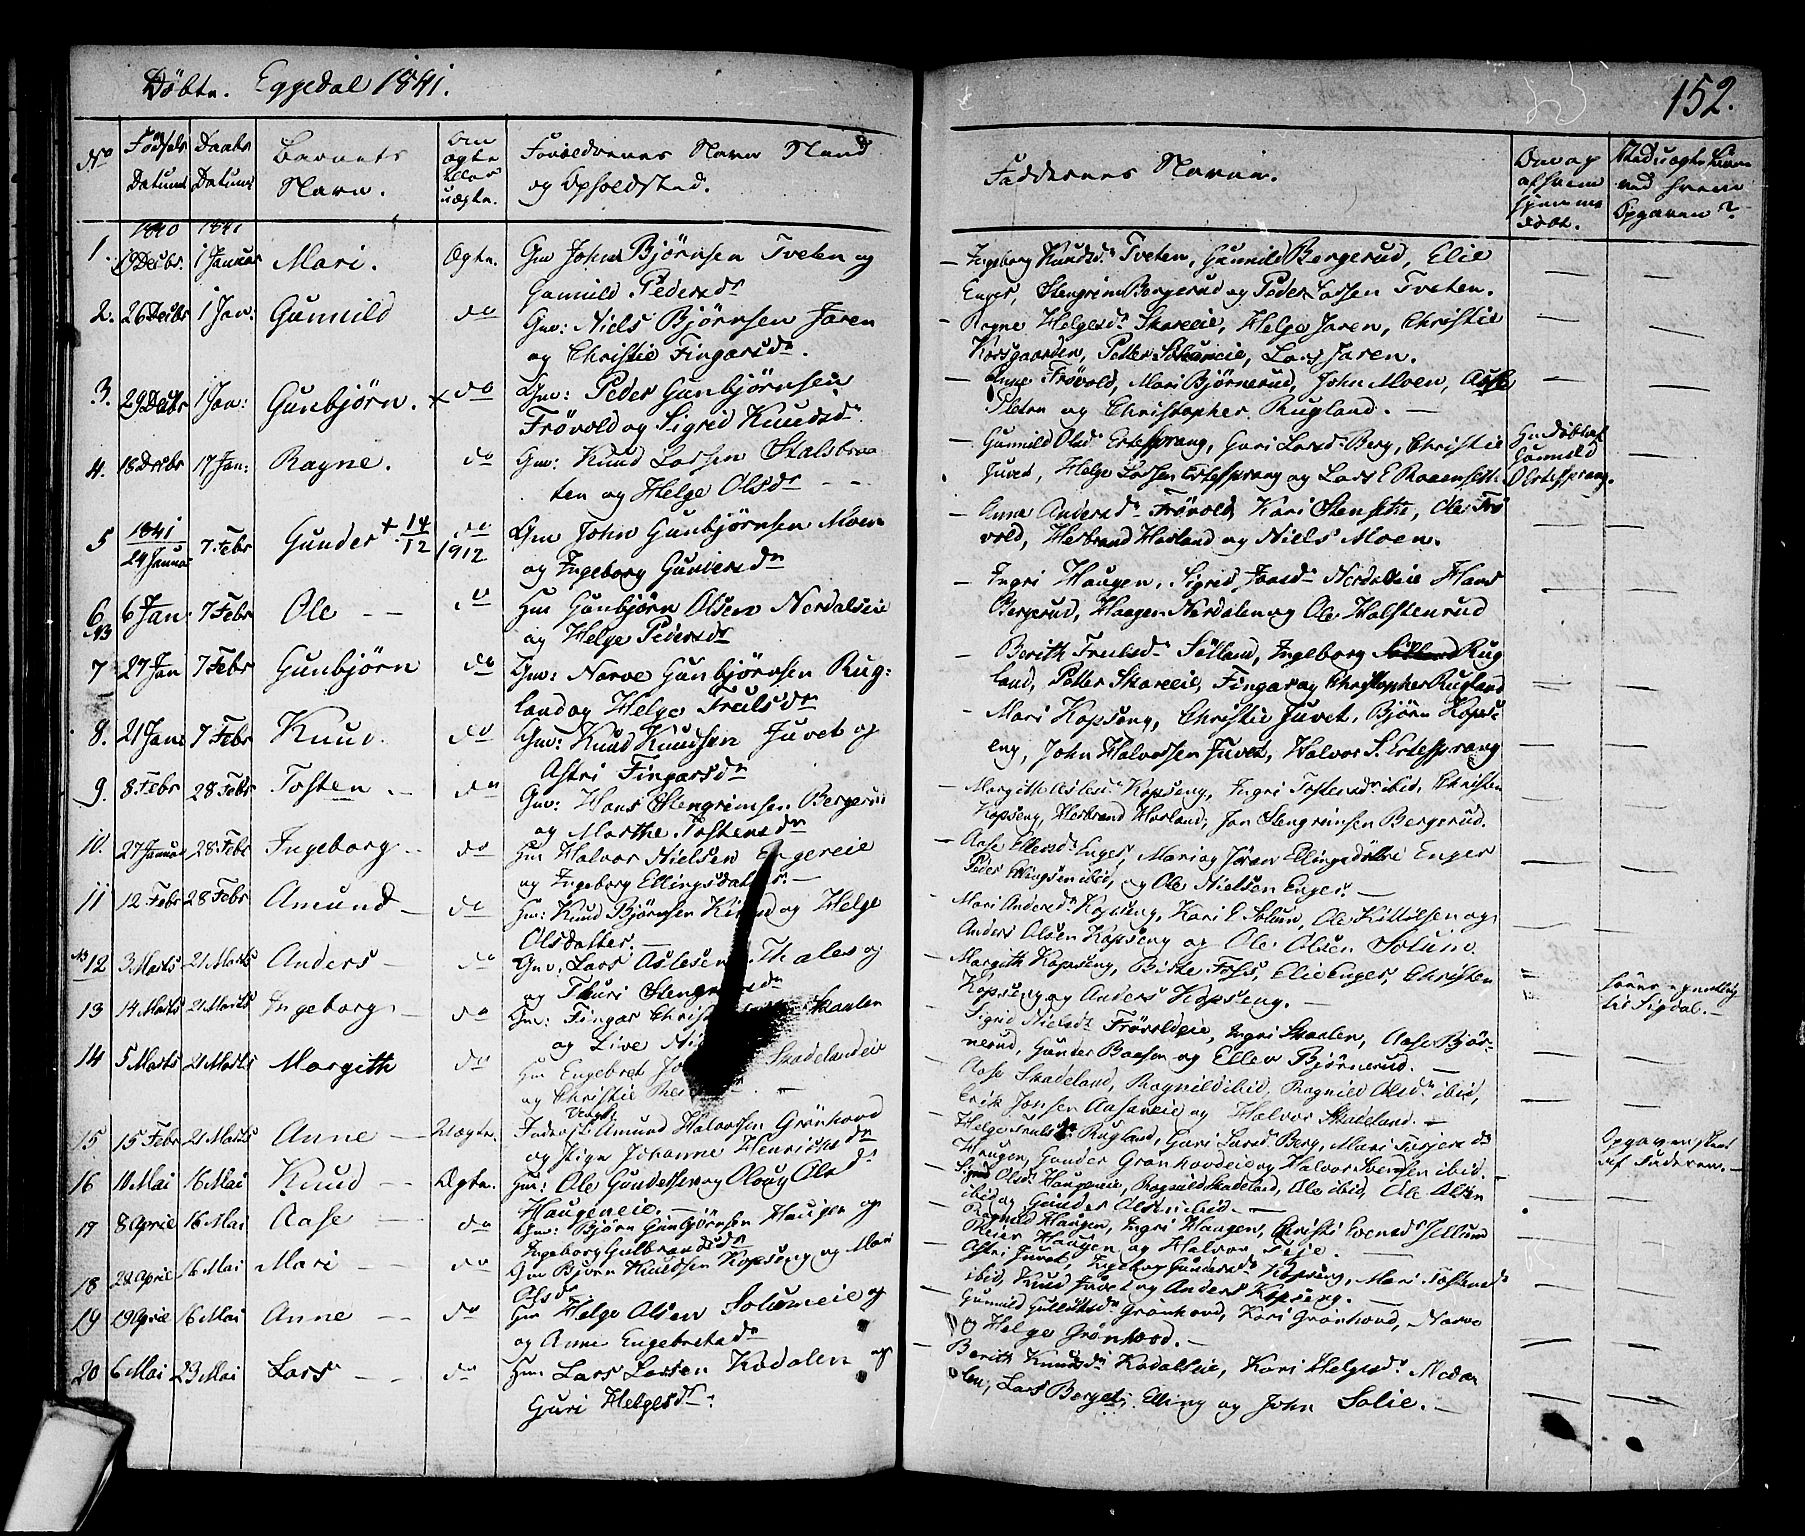 Döbte. Eggedal 1841.
152.
No
Fødsels Datum
Daabs Datum
Barnets Navn.
Om ægte eller uægte.
Forældrenes Navn Stand og Opholdsted.
Faddernes Navne.
1840 1841
1. 1 Januar Mari. Ægte. Gm John Björnsen Tveten og
Gunnild Pedersdr
— Ingeborg Knudsdr Tveten, Gunnild Bergerud, Elie
Enger, Stengrim Bergerud og Peder Larsen Tveten.
2. 26 Decbr 1 Jan: Gunnild do Gm: Niels Björnsen Jaren
og Christie Fingarsdr.
— Ragne Helgesdr Skareeie, Helge Jaren, Christie
Korsgaarden, Petter Skareeie, Lars Jaren.
3. 29 Decbr 1 Jan: Gunbjörn. × do Gm: Peder Gunbjörnsen
Frövold og Sigrid Knudsdr
— Anne Frövold, Mari Björnerud, John Moen,
Pletan og Christopher Rugland. —
4. 18 Decbr 17 Jan: Ragne. do Gm: Knud Larsen Stalsbraa
ten og Helge Olsdr — —
— Gunnild Olsdr Ertesprang, Guri Larsdr Berg, Christie
Juvet, Helge Larsen Ertesprang og Lars E
Hm döbt af
Gunnild
O Ertesprang.
5 1841
24 Januar 7 Febr Gunder + 14/12 1912 do Gm John Gunbjörnsen Moen
og Ingeborg Gundersdr
— Anne Andersdr Frövold, Kari Stensetie, Ole Frö
vold, Herbrand Havland og Niels Moen.
6 NB 6 Jan: 7 Febr Ole — — do Hm Gunbjörn Olsen Nerdalseie
og Helge Pedersdr
— Ingri Haugen, Sigrid Nerdaleie Hans
Bergerud, Haagen Nerdalen og Ole Halstenrud
7 27 Jan 7 Febr Gunbjörn do Gm: Narve Gunbjörnsen Rug:
land og Helge Trulsdr
— Berith Trulsdr Sölland, Ingeborg Rug
land, Petter Skareeie, Fingar og Christopher Rugland
8. 21 Jan: 7 Febr Knud do Gm: Knud Knudsen Juvet og
Astri Fingarsdr
— Mari Kopseng, Christie Juvet, Björn Kops:
eng, John Halvorsen Juvet, Halvor S. Ertesprang
9. 8 Febr 28 Febr Tosten. — do Gm: Hans Stengrimsen Bergerud
og Marthe Tostensdr
— Margith Aslesdr Kopseng, Ingri Tostensdr ibid, Christen
Kopseng, Herbrand Havland, Jon Stengrimsen Bergerud.
10. 27 Januar 28 Febr Ingeborg — do Hm Halvor Nielsen Engereie
og Ingeborg Ellingsdatter. —
— Aase Ellersdr Enger, Mari og Jöran Ellingsdöttre Enger
Peder Ellingsen ibid, og Ole Nielsen Enger. —
11 12 Febr 28 Febr Amund — do Hm: Knud Björnsen og Helge
Olsdatter. —
— Mari Andersdr Kopseng, Kari E Solum, Ole Kittilsen og
Anders Olsen Kopseng og Ole Olsen Solum.
NB 12 3 Marts 21 Marts Anders — do Gm: Lars Aslesen Thales og
og Thuri
— Margith Kopseng, Birte Foss, Elie Enger, Christen
Kopseng og Anders Kopseng. —
hörer egentlig
til Sigdal. —
13 14 Marts 21 Marts Ingeborg — do Gm: Fingar Skaalen
og Live
— Sigrid Nielsdr Frövoldeie, Ingri Skaalen, Aase Björ-
nerud, Gunder Baasen og Ellev Björnerud. —
14 5 Marts 21 Marts Margith do Hm Engebret Skadelandeie
og Christie
— Aase Skadeland, Ragnild ibid, Ragnild Olsdr ibid,
Erik Jonsen Aasaneie og Halvor Skadeland. —
15 15 Febr 21 Marts Anne — — Uægte. Amund Halvorsen Grönhovd
og Pige Johanne Henriksdr
— Helge Trulsdr Rugland, Guri Larsdr Berg, Mari
Haugen, Gunder Grönhovdeie og Halvor Svensen ibid. —
Opgaven skeet
af Faderen. —
16 10 Mai 16 Mai Knud — — Ægte. Hm: Ole Gundersen og Olaug Olsdr
Haugeneie. —
— Olsdr Haugeneie, Ragnild Skadeland, Ole ibid, Ole Olsen
ibid og Gunder Olsen ibid. —
17 8 April 16 Mai Aase — — do Gm: Björn Gunbjörnsen Haugen og
Ingeborg Gulbrandsdr
— Ragnild Haugen, Ingri Haugen, Christi Evensdr
Haugen og Halvor Teje. —
18 16 Mai Mari — — do Gm Björn Knudsen Kopseng og Mari
Olsdr —
— Astri Juvet, Ingeborg Gundersdr Kopseng, Mari Tostensdr
ibid, Knud Juvet og Anders Kopseng. —
19 19 April 16 Mai Anne — — do Hm Helge Olsen Solumeie og
og Anne Engebretsdr
— Gunnild Grönhovd, Kari Grönhovd, Narve
og Helge Grönhovd. —
20 6 Mai 23 Mai Lars — — do Hm: Lars Larsen Kodalen og
Guri Helgesdr:
— Berith Knudsdr Kodalseie, Kari Helgesdr
Lars Berget, Elling og John Solie. —